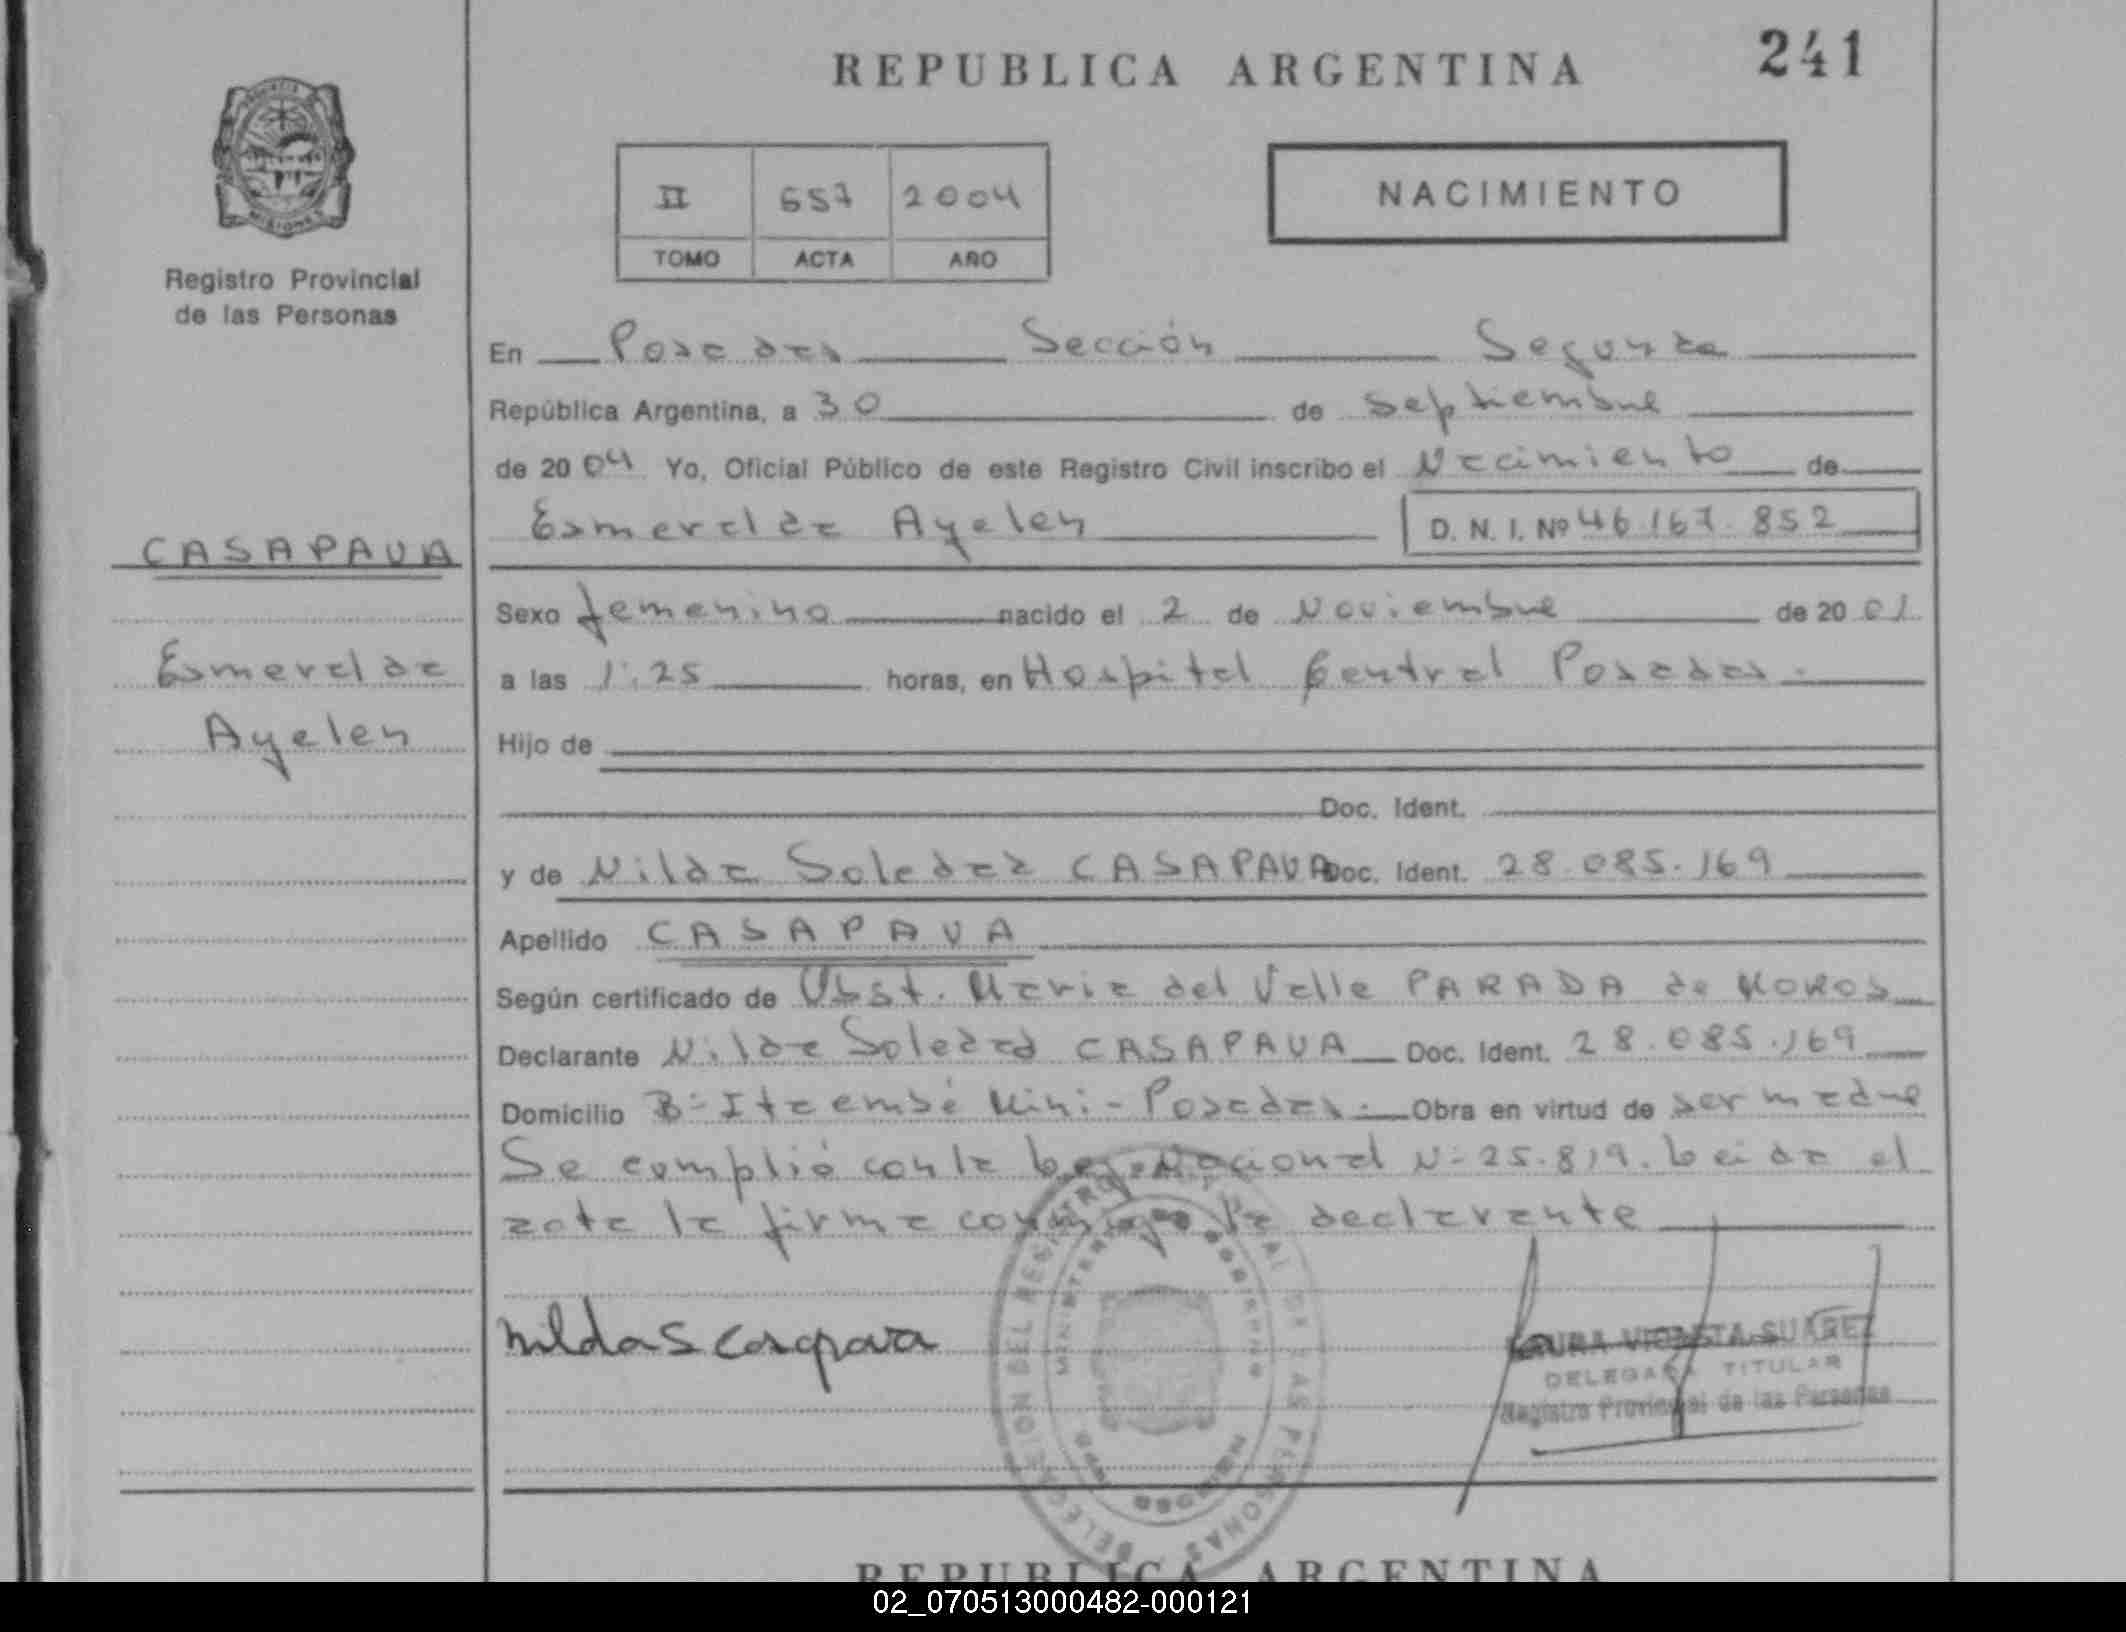 REPUBLICA ARGENTINA
241
PROVINCIA
MISIONES
Registro Provincial
de las Personas
II 657 2004
TOMO ACTA AÑO
NACIMIENTO
En Posadas Sección Segunda
República Argentina, a 30 de septiembre
de 2004 Yo, Oficial Público de este Registro Civil inscribo el Nacimiento de
Esmeralda Ayelen D. N. I. Nº 46.167.852
CASAPAVA
Esmeralda
Ayelen
Sexo femenino nacido el 2 de Noviembre de 2001
a las 1:25 horas, en Hospital Central Posadas.
Hijo de
Doc. Ident.
y de Nilda Soledad CASAPAVA Doc. Ident. 28.085.169
Apellido CASAPAVA
Según certificado de Obst. Maria del Valle PARADA de MOROS
Declarante Nilda Soledad CASAPAVA Doc. Ident. 28.085.169
Domicilio Bº Itaembé Mini - Posadas. Obra en virtud de ser madre
Se cumplió con la Ley Nacional Nº 25.819. Leida el
acta la firma conmigo la declarante
Nilda S Casapava
LAURA VICENTA SUAREZ
DELEGADA TITULAR
Registro Provincial de las Personas
REPUBLICA ARGENTINA
02_070513000482-000121